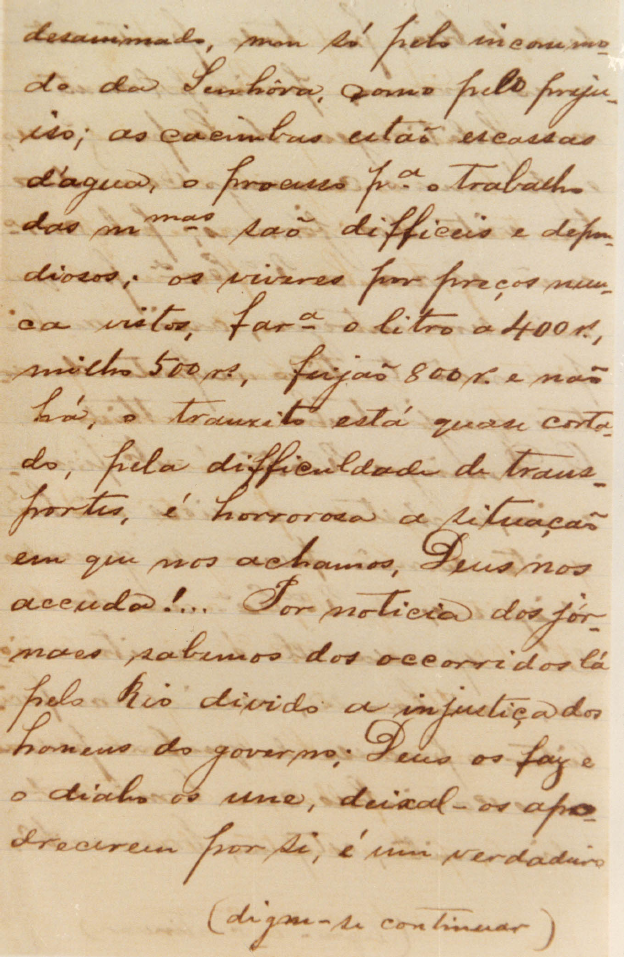 desanimado, nan só pelo incommo-
do da Senhôra, como pelo preju-
iso; as cacimbas estaõ escassas
d'agua, o processo p.ª o trabalho
das m mas saõ difficeis e depen-
diosos; os viveres por preços nun-
ca vistos, far.ª o litro a 400 r.s,
milho 500 r.s, feijaõ 800 r. e naõ
há, o tranzito está quase corta-
do, pela difficuldade de trans-
portes, é horrorosa a situaçaõ
em que nos achamos, Deus nos
accuda!... Por noticia dos jór-
naes sabemos dos occorridos lá
pelo Rio divido a injustiça dos
homens do governo; Deus os faz e
o diabo os une, deixal-os apo-
drecerem por si, é um verdadeiro
(digne-se continuar)